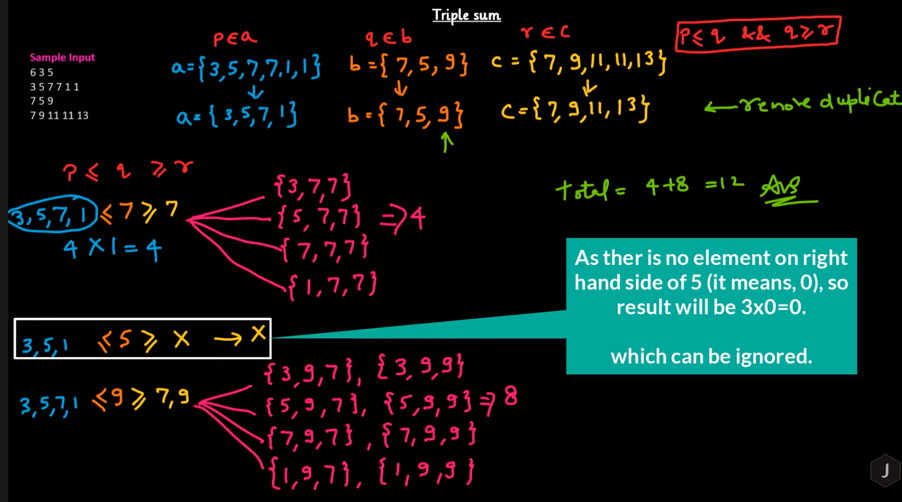 Triple sum
Sample Input
6 3 5
3 5 7 7 1 1
7 5 9
7 9 11 11 13
p∈a
q∈b
r∈c
p≤q && q≥r
a={3,5,7,7,1,1}
b={7,5,9}
c={7,9,11,11,13}
a={3,5,7,1}
b={7,5,9}
c={7,9,11,13}
←remove duplicat
p≤ q ≥r
3,5,7,1 ≤7≥7
4×1=4
{3,7,7}
{5,7,7} ⇒4
{7,7,7}
{1,7,7}
Total = 4+8 =12 Ans
As ther is no element on right
hand side of 5 (it means, 0), so
result will be 3x0=0.
which can be ignored.
3,5,1 ≤5≥ X → X
3,5,7,1 ≤9≥7,9
{3,9,7}, {3,9,9}
{5,9,7}, {5,9,9}⇒8
{7,9,7}, {7,9,9}
{1,9,7}, {1,9,9}
J